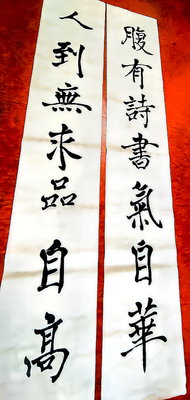 腹有詩書氣自華
人到無求品自高